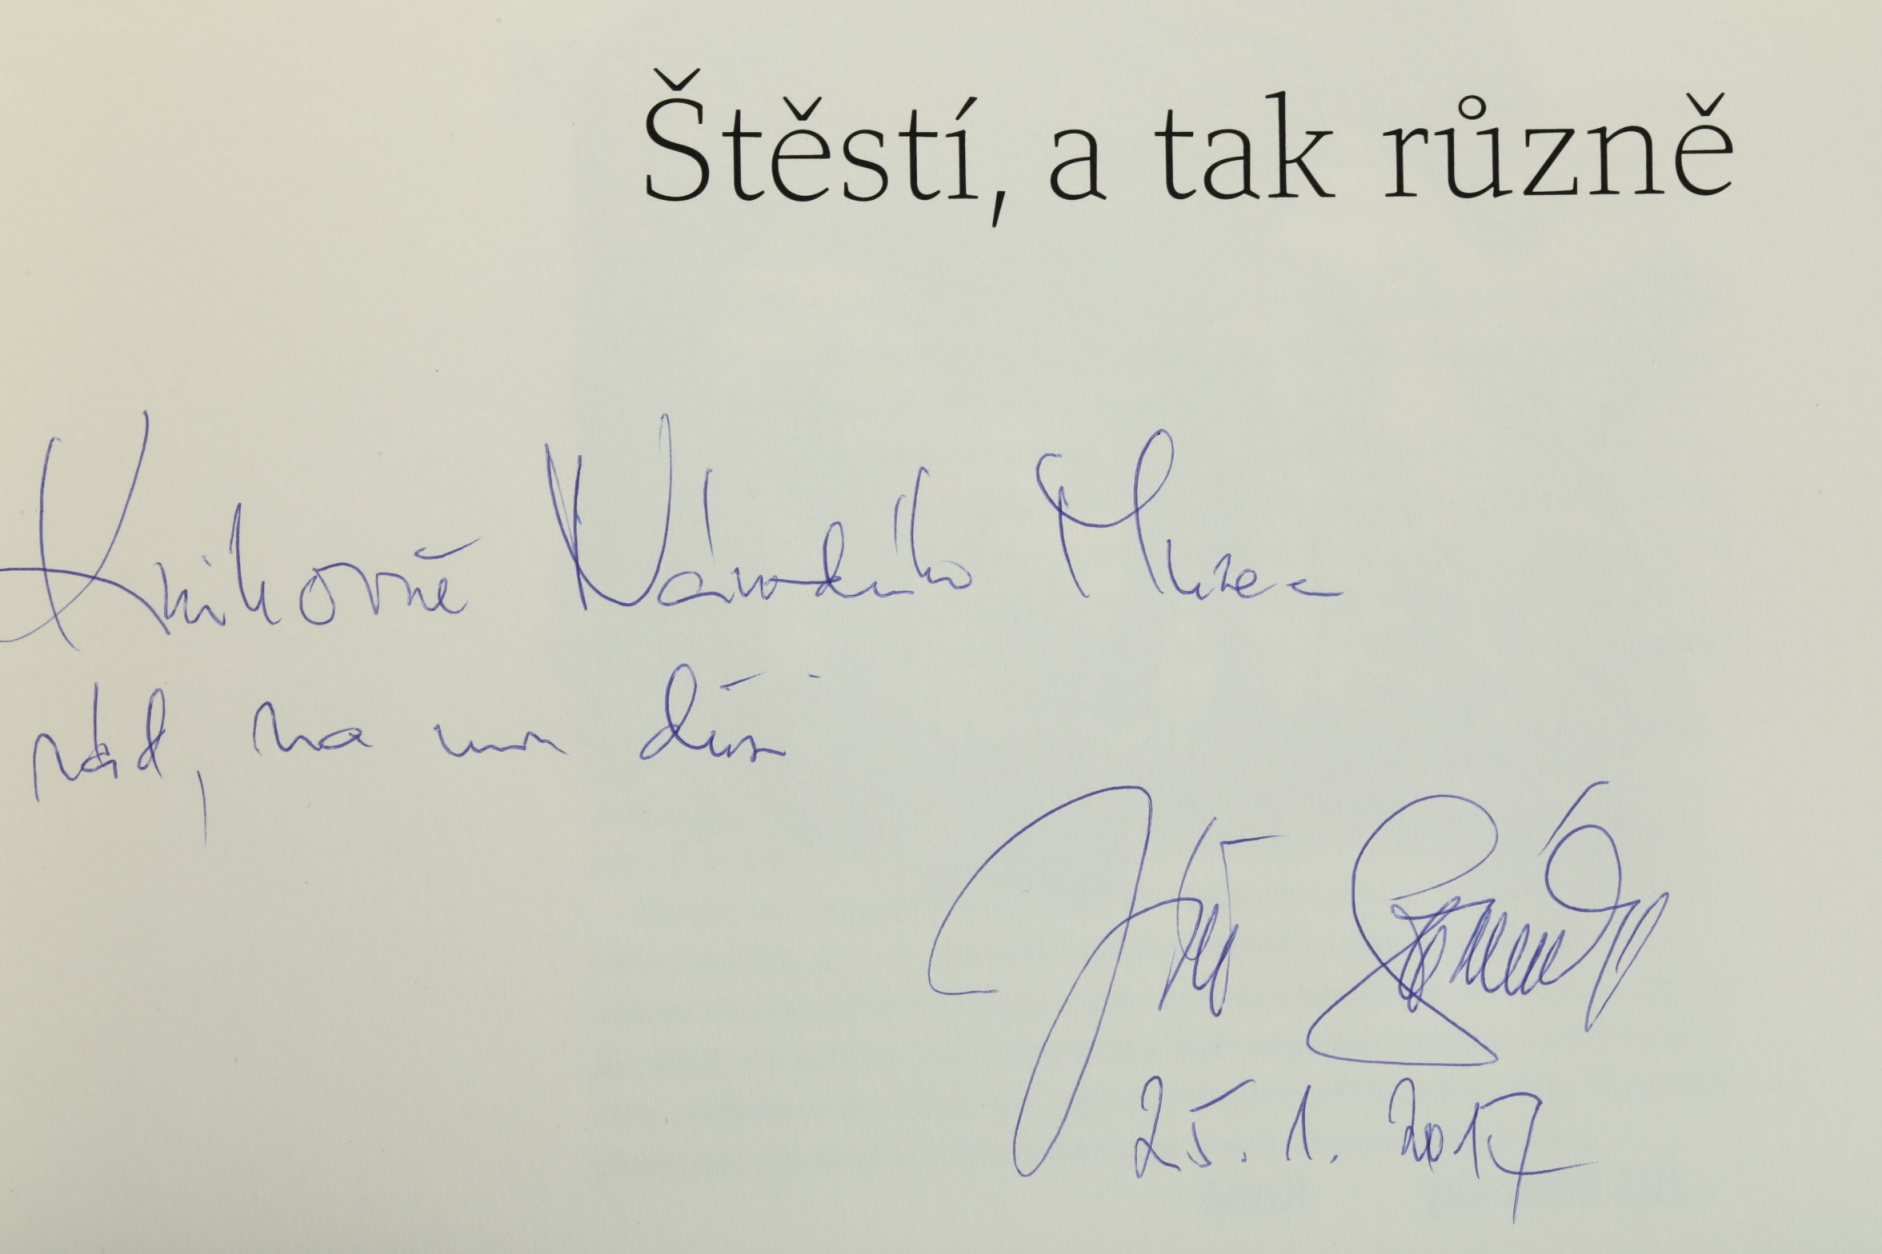 Štěstí, a tak různě
Knihovně Národního Muzea
rád, na mou duši
Jiří
25. 1. 2017